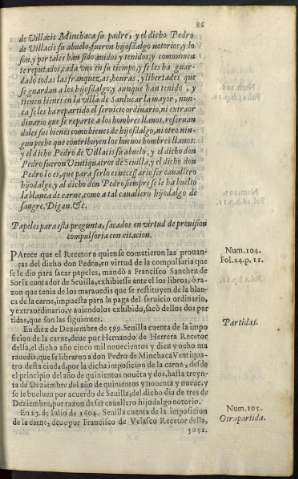 86
de Villacis Minchaca su padre, y el dicho Pedro
de Villacis su abuelo fueron hijosdalgo notorios, y lo
son, y por tales han sido auidos y tenidos, y comunmē
te reputados, cada vno en su tiempo, y se les ha guar
dado todas las franquezas, honras, y libertades que
se guardan a los hijosdalgo; y aunque han tenido, y
tienen bienes en la villa de Sanlucar la mayor, nun-
ca se les ha repartido el seruicio ordinario, ni extraor
dinario que se reparte a los hombres llanos, reseruan
doles sus bienes como bienes de hijosdalgo, ni otro nin-
gun pecho que contribuyen los buenos hombres llanos:
y el dicho Pedro de Villacis su abuelo, y el dicho don
Pedro fueron Veintiquatros de Seuilla, y el dicho don
Pedro lo es, que para serlo es necessario ser cauallero
hijodalgo, y al dicho don Pedro siempre se le ha buelto
la blanca de carne, como a tal cauallero hijodalgo de
sangre. Digan. &c.
Papeles para esta pregunta, sacados en virtud de prouision
compulsoria con citacion.
PArece que el Receptor a quien se cometieron las prouan-
ças del dicho don Pedro, en virtud de la compulsoria que
se le dio para sacar papeles, mandò a Francisco Sanchez de
Soria contador de Seuilla, exhibiesse ante el los libros, ò ra-
zon que tenia de los marauedis que se restituyen de la blan-
ca de la carne, impuesta para la paga del seruicio ordinario,
y extraordinario; y auiendolos exhibido, sacò dellos dos par
tidas, que son las siguientes.
Num. 104.
Fol. 24. p. 11.
En diez de Deziembre de 599. Seuilla cuenta de la impo
sicion de la carne, deue por Hernando de Herrera Recetor
della, el dicho año cinco mil nouecientos y diez y ocho ma
rauedis, que se libraron a don Pedro de Minchaca Veintiqua-
tro desta ciudad, por la dicha imposicion de la carne, desde
el principio del año de quinientos nouēta y dos, hasta treyn-
ta de Deziembre del año de quinientos y nouenta y nueue, y
se le boluieron por acuerdo de Seuilla, del dicho dia tres de
Deziembre, por razon de ser cauallero hijodalgo notorio.
Partidas.
En 23. de Iulio de 1604. Seuilla cuenta de la imposicion
de la carne, deue por Francisco de Velasco Recetor della,
Num. 105.
Otra partida.
3092.